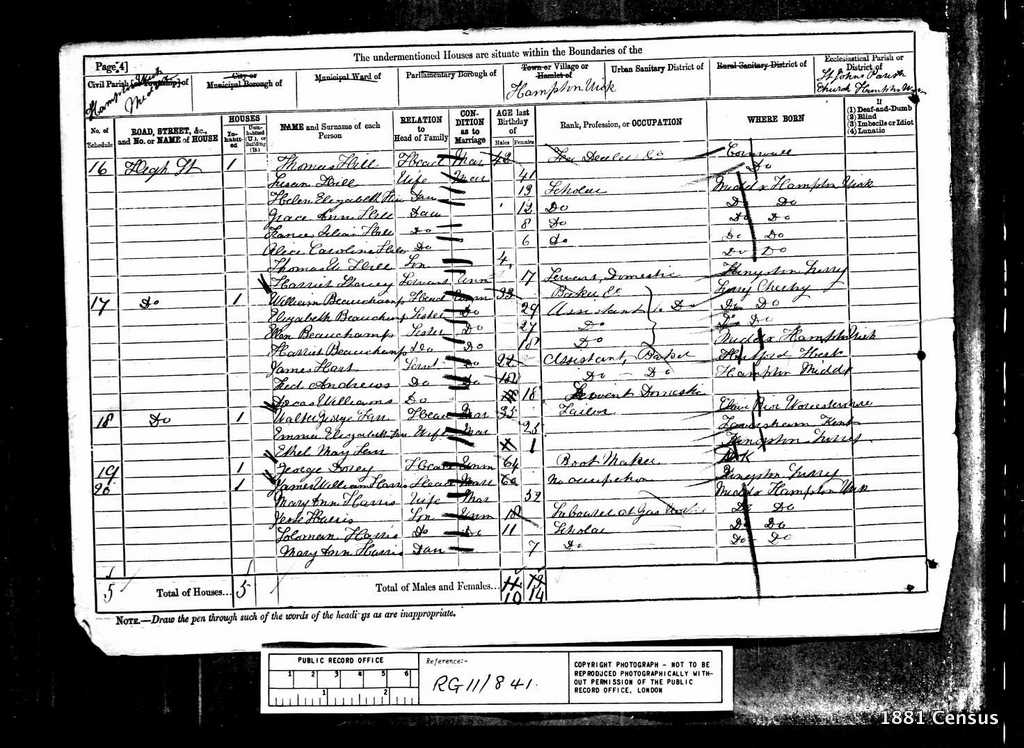 The undermentioned Houses are situate within the Boundaries of the
Page 4]
Civil Parish [or Township] of
City or Municipal Borough of
Municipal Ward of
Parliamentary Borough of
Town or Village or Hamlet of
Urban Sanitary District of
Rural Sanitary District of
Ecclesiastical Parish or District of
Hampton Wick
St Johns Parish
Church Hampton Wick
No. of Schedule
ROAD, STREET, &c., and No. or NAME of HOUSE
HOUSES
In-habit-ed
Unin-habited (U.), or Building (B.)
NAME and Surname of each Person
RELATION to Head of Family
CON-DITION as to Marriage
AGE last Birthday of
Males
Females
Rank, Profession, or OCCUPATION
WHERE BORN
If
(1) Deaf-and-Dumb
(2) Blind
(3) Imbecile or Idiot
(4) Lunatic
16 High St 1 Thomas Hill Head Mar Cornwall
Susan Hill Wife Mar 41 Do
Helen Elizabeth Dau 13 Scholar Middx Hampton Wick
Grace Ann Hill Dau 12 Do Do Do
Hill Do 8 Do Do Do
Alice Caroline Hill Do 6 Do Do Do
Thomas Hill Son 4 Do Do
Harriet Servant Unm 17 Servant, Domestic Kingston Surrey
17 Do 1 William Beauchamp Head Unm 33 Baker &c
Elizabeth Beauchamp Sister Do 29 Assistant to Do Do Do
Ellen Beauchamp Sister Do 27 Do Do Do
Harriet Beauchamp Do Do 18 Middx Hampton Wick
James Hart Servt Do Assistant, Baker
Fred Andrews Do Do Do Do Hampton Middx
Williams Do 18 Servant Domestic
18 Do 1 Walter George Head Mar 35 Tailor Worcestershire
Emma Elizabeth Wife Mar 25 Kent
Ethel May 1 Kingston Surrey
19 1 George Head Unm 64 Boot Maker
20 1 James William Harris Head Mar No occupation Kingston Surrey
Mary Ann Harris Wife Mar 52 Middx Hampton Wick
Jesse Harris Son Unm 18 Labourer at Gas Works Do Do
Soloman Harris Do Do 11 Scholar Do Do
Mary Ann Harris Dau 7 Do Do Do
5 Total of Houses... 5 Total of Males and Females... 10 14
NOTE.—Draw the pen through such of the words of the headings as are inappropriate.
PUBLIC RECORD OFFICE
1 2 3 4 5 6
1 2
Reference:-
RG 11/841.
COPYRIGHT PHOTOGRAPH - NOT TO BE
REPRODUCED PHOTOGRAPHICALLY WITH-
OUT PERMISSION OF THE PUBLIC
RECORD OFFICE, LONDON
1881 Census